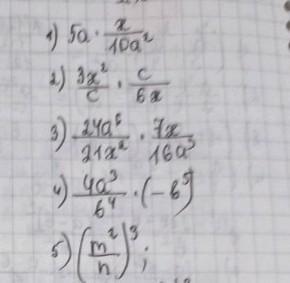 1) 5a · x/10a²
2) 3x²/c · c/6x
3) 24a⁶/21x² · 7x/16a³
4) 4a³/b⁴ · (-b⁵)
5) (m²/n)³;